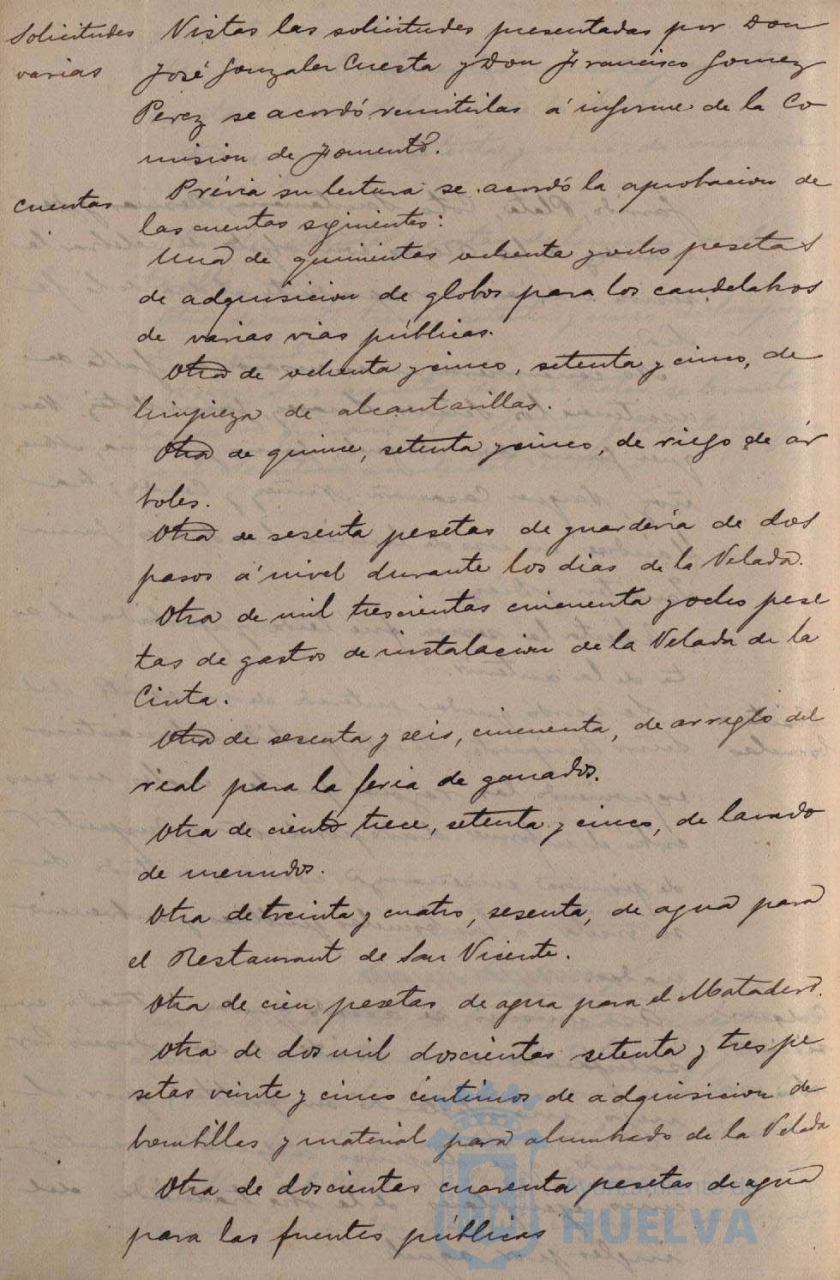 Solicitudes varias
Vistas las solicitudes presentadas por Don
José Gonzalez Cuesta y Don Francisco Gomez
Perez se acordó remitirlas á informe de la Co
mision de Fomento.
cuentas
Prévia su lectura se acordó la aprobacion de
las cuentas siguientes:
Una de quinientas ochenta y ocho pesetas
de adquisicion de globos para los candelabros
de varias vias públicas.
Otra de ochenta y cinco, setenta y cinco, de
limpieza de alcantarillas.
Otra de quince, setenta y cinco, de riego de ár
boles.
Otra de sesenta pesetas de guardería de dos
pasos á nivel durante los dias de la Velada.
Otra de mil trescientas cincuenta y ocho pese
tas de gastos de instalacion de la Velada de la
Cinta.
Otra de sesenta y seis, cincuenta, de arreglo del
real para la feria de ganados.
Otra de ciento trece, setenta y cinco, de lavado
de menudos.
Otra de treinta y cuatro, sesenta, de agua para
el Restaurant de San Vicente.
Otra de cien pesetas de agua para el Matadero.
Otra de dos mil doscientas setenta y tres pe
setas veinte y cinco céntimos de adquisicion de
bombillas y material para alumbrado de la Velada
Otra de doscientas cuarenta pesetas de agua
para las fuentes públicas
HUELVA